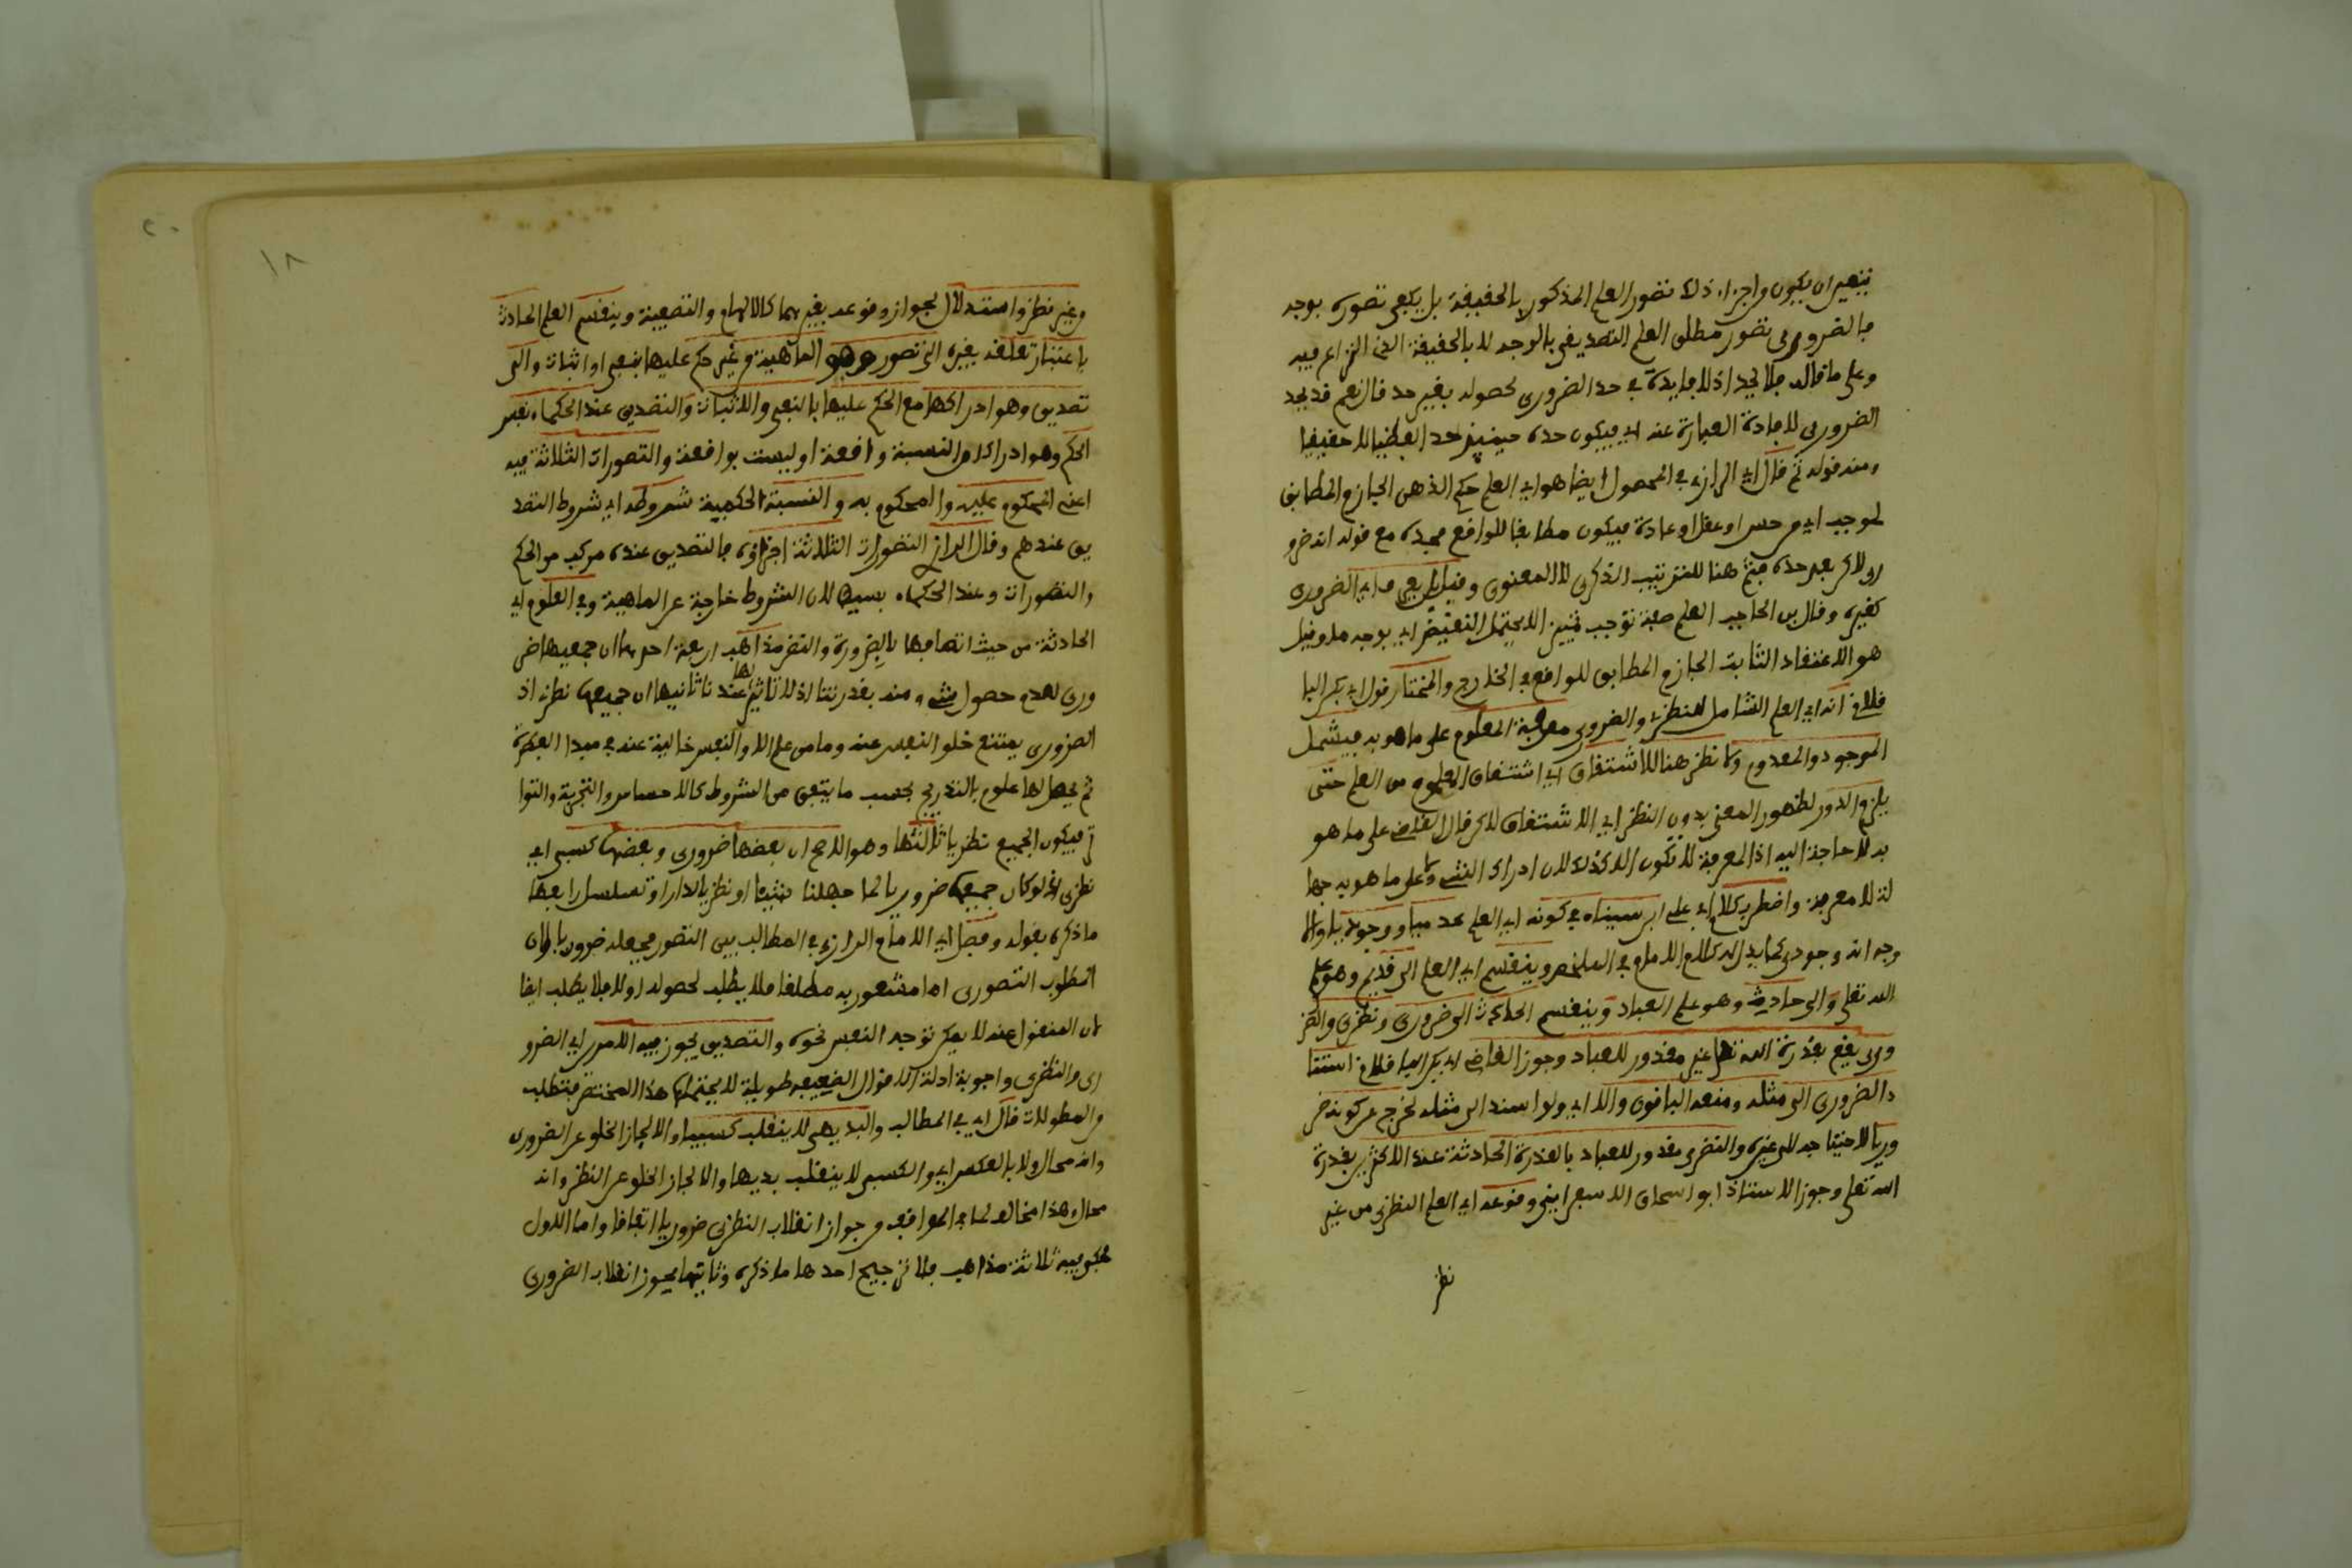 يتعين ان يكون من اجزاء ذلك تصور العلم المذكور بالحقيقة بل يكفي تصوره بوجه
فالضروري تصور مطلق العلم التصديقي بالوجه لا بالحقيقة الذي النزاع فيه
وعلى ما قاله فلا يحد اذ لا فايدة في حد الضروري لحصوله بغير حد قال نعم قد يحد
الضروري لافادة العبارة عنه اي فيكون حده حينئذ حدا لفظيا لا حقيقيا
ومنه قوله ثم قال اي الرازي في المحصول ايضا هو اي العلم حكم الذهن الجازم المطابق
لموجب اي من حس او عقل او عادة فيكون مطابقا للواقع فحده مع قوله انه ضرو
ري لاكن بعد حده فثم هنا للترتيب الذكري لا المعنوي وقيل اي الضروري
كغيره وقال بن الحاجب العلم صفة توجب تمييزا لا يحتمل النقيض اي بوجه ما وقيل
هو الاعتقاد الثابت الجازم المطابق للواقع في الخارج والمختار قول ابي بكر البا
قلاني انه اي العلم الشامل للنظري والضروري معرفة المعلوم على ما هو به فيشمل
الموجود والمعدوم ولا نظر هنا للاشتقاق اي اشتقاق المعلوم من العلم حتى
يلزم الدور لظهور المعنى بدون النظر الى الاشتقاق لاكن قال القاضي على ما هو
به لا حاجة اليه اذ المعرفة لا تكون الا كذلك لان ادراك الشيء لا على ما هو به جها
لة لا معرفة واضطرب كلام ابي علي ابن سيناء في كونه اي العلم عدميا او وجوديا والا
وجه انه وجودي كما يدل له كلام الامام في الملخص وينقسم اي العلم الى قديم وهو علم
الله تعلى والى حادث وهو علم العباد وينقسم الحادث الى ضروري ونظري والضر
وري يقع بقدرة الله تعلى غير مقدور للعباد وجوز القاضي ابي بكر الباقلاني استنا
د الضروري الى مثله ومنعه الباقون والا اي ولو اسند الى مثله لخرج عن كونه ضر
وريا لاحتياجه الى غيره والنضري مقدور للعباد بالقدرة الحادثة عند الاكثرين بقدرة
الله تعلى وجوز الاستاذ ابو اسحاق الاسفرايني وقوعه اي العلم النظري من غير
نظر
١٨
٢٠
من غير نظر واستدلال لجواز وقوعه بغيرهما كالالهام والتصفية وينقسم العلم الحادث
باعتبار تعلقه بغيره الى تصور وهو الماهية من غير حكم عليها بنفي او اثبات والى
تصديق وهو ادراكها مع الحكم عليها بالنفي والاثبات والتصديق عند الحكماء نفس
الحكم وهو ادراك ان النسبة واقعة او ليست بواقعة والتصورات الثلاثة فيه
اعني المحكوم عليه والمحكوم به والنسبة الحكمية شروطه اي شروط التصد
يق عندهم وقال الرازي التصورات الثلاثة اجزاؤه فالتصديق عنده مركب من الحكم
والتصورات وعند الحكماء بسيط لان الشروط خارجة عن الماهية وفي العلوم اي
الحادثة من حيث اتصافها بالضرورة والنضر مذاهب اربعة احدها ان جميعها ضر
وري لعدم حصول شيء منه بقدرتنا اذ لا تاثير لها عندنا ثانيها ان جميعها نظري اذ
الضروري يمتنع خلو النفس عنه وما من علم الا والنفس خالية عنه في مبدا الفطرة
ثم يحصل لها علوم بالتدريج بحسب ما يتفق من الشروط كالاحساس والتجربة والتوا
تر فيكون الجميع نظريا ثالثها وهو الاصح ان بعضها ضروري وبعضها كسبي اي
نظري اذ لو كان جميعها ضروريا لما جهلنا شيئا او نظريا لدار او تسلسل رابعها
ما ذكره بقوله وفصل اي الامام الرازي في المطالب بين التصور فجعله ضروريا لان
المطلوب التصوري اما مشعور به مطلقا فلا يطلب لحصوله اولا فلا يطلب ايضا
لان المغفول عنه لا يمكن توجه النفس نحوه والتصديق يجوز فيه الامرين اي الضرو
ري والنظري واجوبة ادلة الاقوال الضعيفة طويلة لا يحتملها هذا المختصر فتطلب
من المطولات قال اي في المطالب والبديهي لا ينقلب كسبيا والا لجاز الخلو عن الضروري
وانه محال ولا بالعكس اي والكسبي لا ينقلب بديهيا والا لجاز الخلو عن النظر وانه
محال وهذا مخالف لما في المواقف من جواز انقلاب النظري ضروريا اتفاقا واما الاول
فحكي فيه ثلاثة مذاهب بلا ترجيح احدها ما ذكره وثانيها يجوز انقلاب الضروري